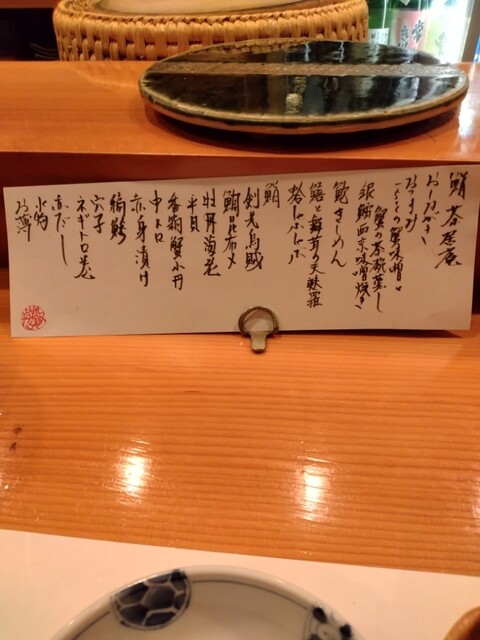 鮨 茶屋庵
おしながき
おつまみ
蟹の茶碗蒸し
銀鱈西京味噌焼き
鮑きしめん
鱚と舞茸の天麩羅
蛤しゃぶしゃぶ
鮨
剣先烏賊
鯛昆布〆
牡丹海老
平貝
香箱蟹小丼
中トロ
赤身漬け
縞鯵
穴子
ネギトロ巻
赤だし
水物
お薄